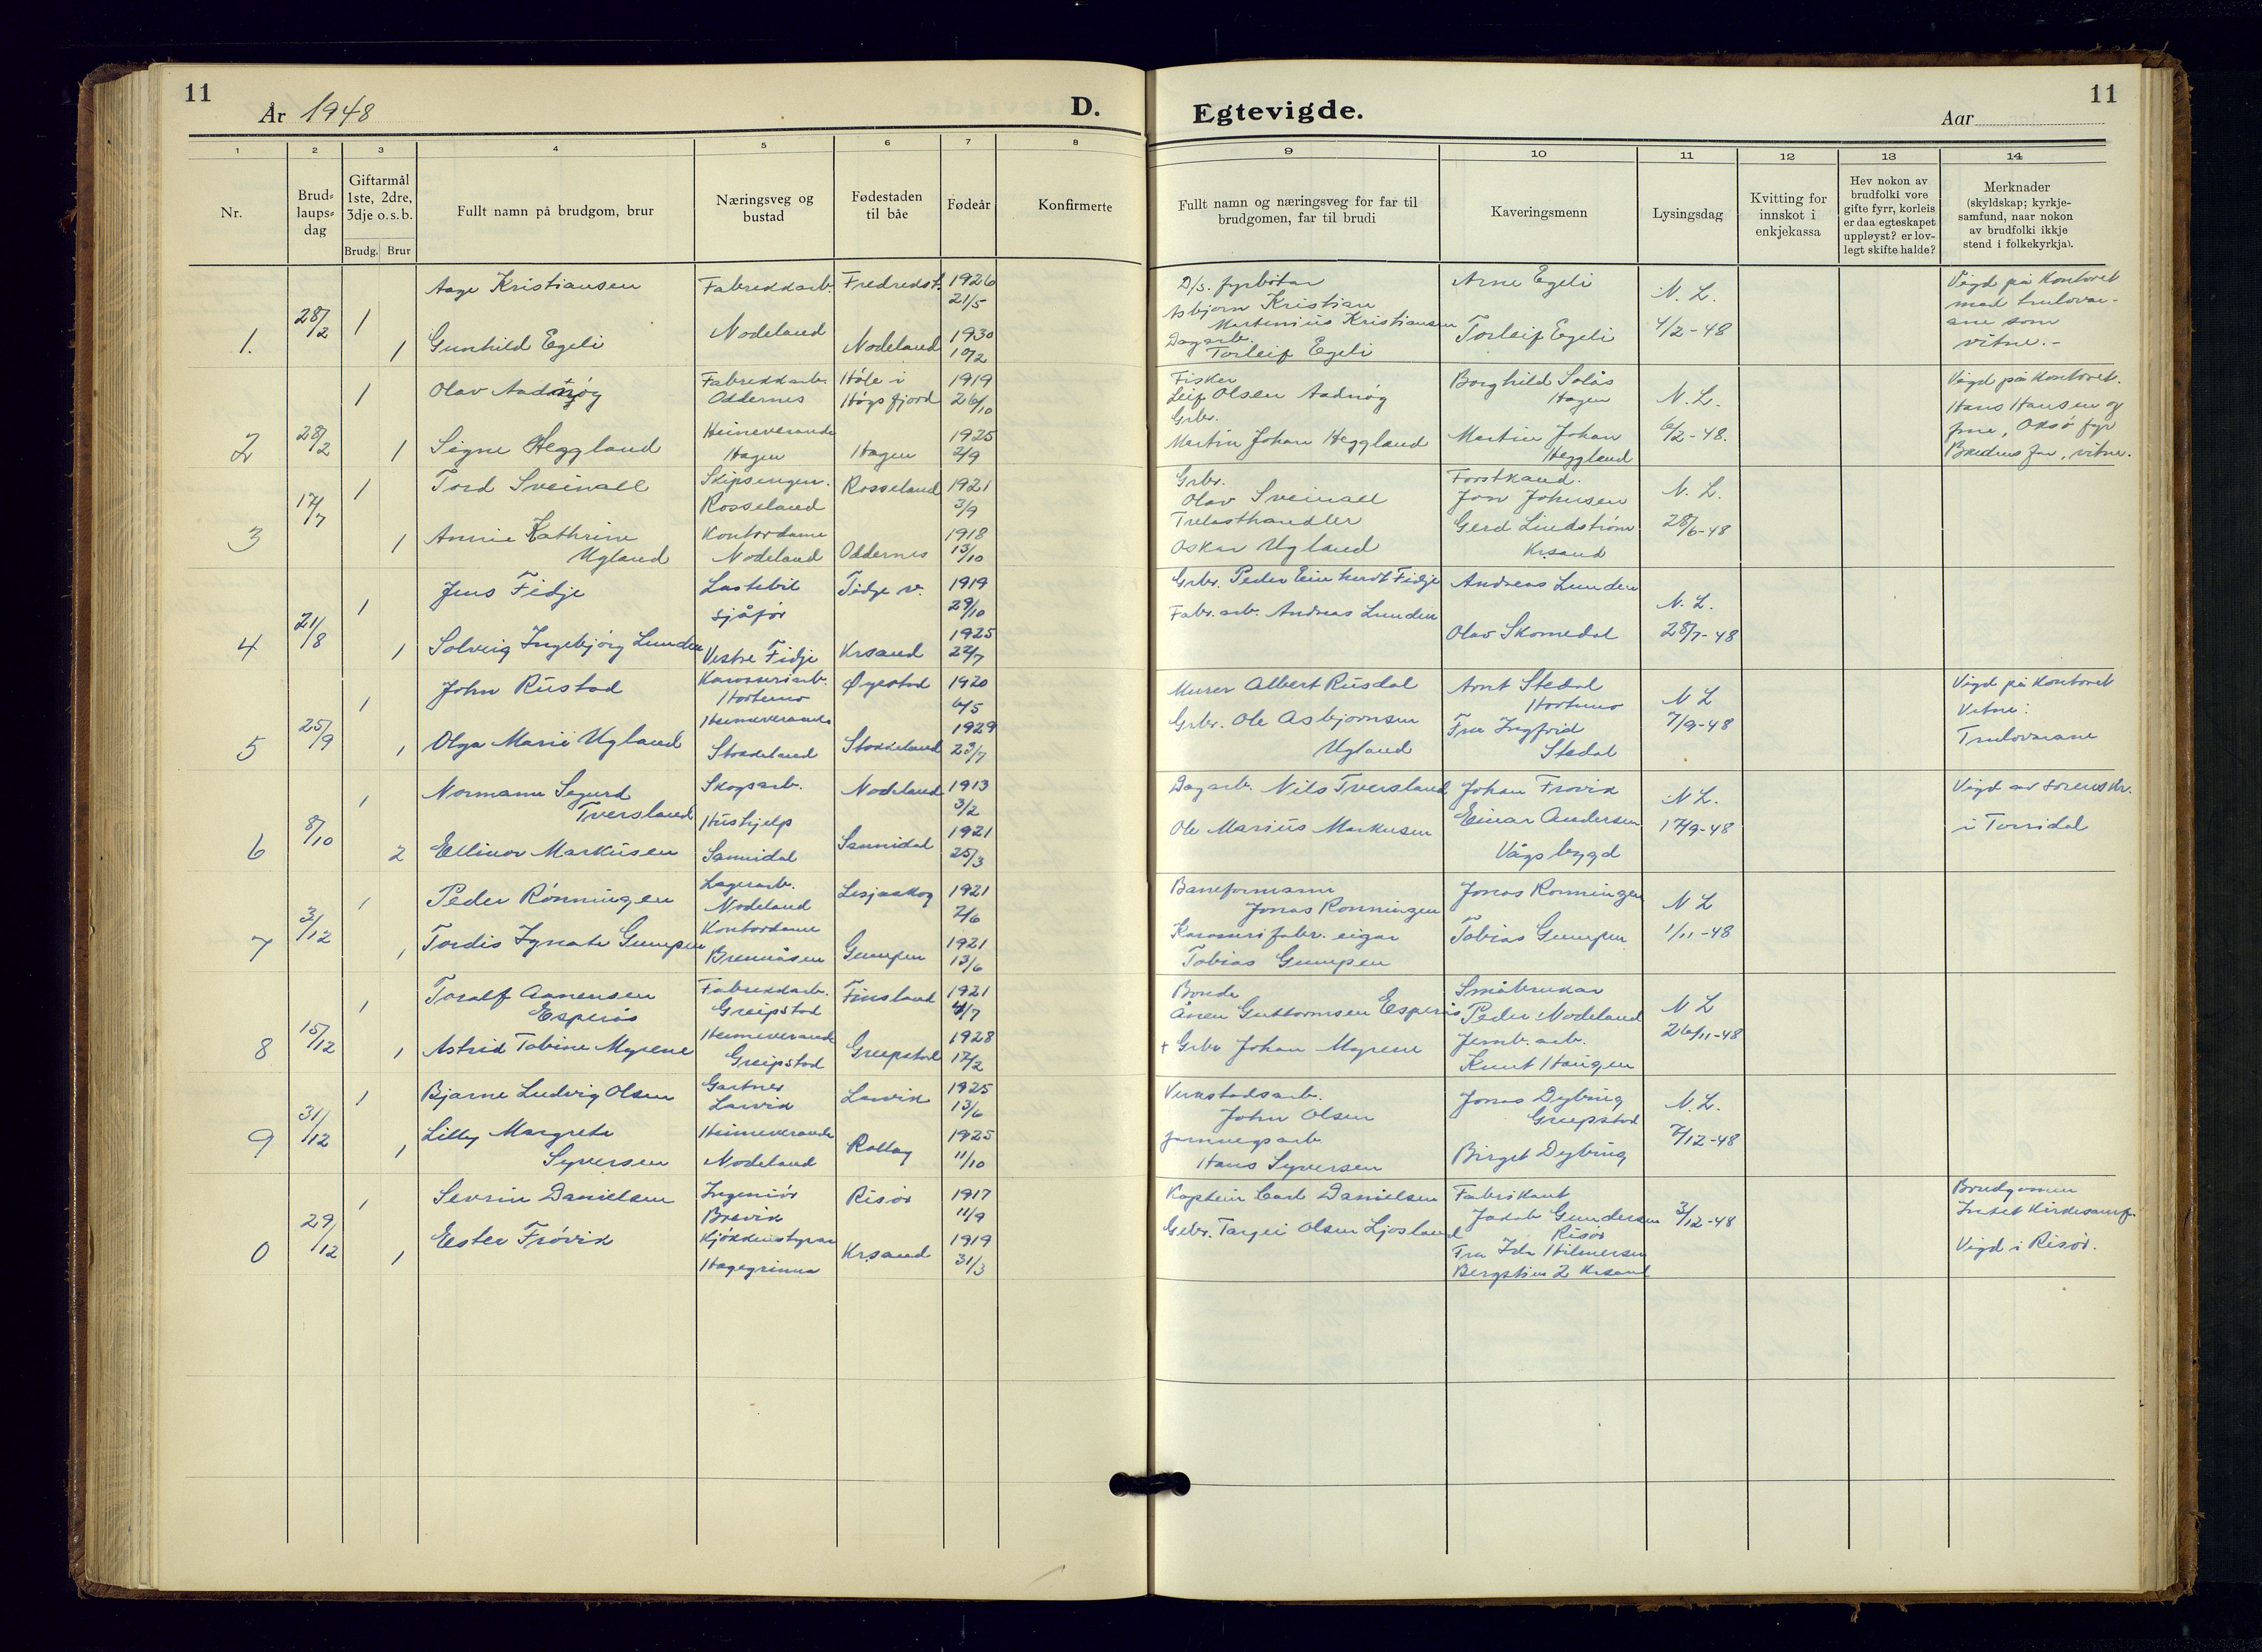 11
År 1948
D.
Egtevigde.
Aar
11
1
2
3
4
5
6
7
8
9
10
11
12
13
14
Nr.
Brud-
laups-
dag
Giftarmål
1ste, 2dre,
3dje o.s.b.
Brudg. Brur
Fullt namn på brudgom, brur
Næringsveg og
bustad
Fødestaden
til båe
Fødeår
Konfirmerte
Fullt namn og næringsveg for far til
brudgomen, far til brudi
Kaveringsmenn
Lysingsdag
Kvitting for
innskot i
enkjekassa
Hev nokon av
brudfolki vore
gifte fyrr, korleis
er daa egteskapet
uppløyst? er lov-
legt skifte halde?
Merknader
(skyldskap; kyrkje-
samfund, naar nokon
av brudfolki ikkje
stend i folkekyrkja).
1.
28/2
1
1
Aage Kristiansen
Gunhild Egeli
Fabrekkarb.
Nodeland
Fredrekst.
Nodeland
1926
21/5
1930
10/2
D/s. fyrbøtar
Asbjørn Kristian
Martinius Kristiansen
Dagarb.
Torleif Egeli
Arne Egeli
Torleif Egeli
N. L.
4/2-48
Vigd på kontoret
med trulovar-
ane som
vitne.-
2
28/2
1
1
Olav Aadnøy
Signe Heggland
Fabrekkarb.
Oddernes
Heimeverande
Hagen
Høle i
Høgsfjord
Hagen
1919
26/10
1925
2/9
Fisker
Leif Olsen Aadnøy
Grbr.
Martin Johan Heggland
Borghild Solås
Hagen
Martin Johan
Heggland
N. L.
6/2-48.
Vigd på kontoret.
Hans Hansen og
frue, Oksø fyr
Brudens far, vitne.
3
17/7
1
1
Tord Sveinall
Annie Kathrine
Ugland
Skipsengen.
Rosseland
Kontordame
Nodeland
Rosseland
Oddernes
1921
3/9
1918
13/10
Grbr.
Olav Sveinall
Trelasthandler
Oskar Ugland
Forstkand.
Jon Johnsen
Gerd Lindstrøm
Krsand
N. L.
28/6-48
4
21/8
1
1
Jens Fidje
Solveig Ingebjørg Lunden
Lastebil
sjåfør
Vestre Fidje
Fidje v.
Krsand
1919
29/10
1925
22/7
Grbr. Peder Einhardt Fidje
Fabr.arb. Andreas Lunden
Andreas Lunden
Olav Skomedal
N. L.
28/7-48
5
25/9
1
1
John Rustad
Olga Marie Ugland
Karosseriarb.
Hortemo
Heimeverande
Stokkeland
Øyestad
Stokkeland
1920
6/5
1929
23/7
Murer Albert Rusdal
Grbr. Ole Asbjørnsen
Ugland
Arnt Stedal
Hortemo
Fru Ingfrid
Stedal
N L
7/9-48
Vigd på kontoret
Vitne:
Trulovarane
6
8/10
1
2
Normann Sigurd
Tversland
Ellinor Markusen
Skogsarb.
Hushjelp
Sannidal
Nodeland
Sannidal
1913
3/2
1921
25/3
Dagarb. Nils Tversland
Ole Marius Markusen
Johan Frøvik
Einar Andersen
Vågsbygd
N L.
17/9-48
Vigd av sorenskr.
i Torridal
7
3/12
1
1
Peder Rønningen
Tordis Agnete Gumpen
Lagerarb.
Nodeland
Kontordame
Brennåsen
Lesjaskog
Gumpen
1921
2/6
1921
13/6
Baneformann
Jonas Rønningen
Karosserifabr. eigar
Tobias Gumpen
Jonas Rønningen
Tobias Gumpen
N L
1/11-48
8
15/12
1
1
Toralf Aanensen
Esperås
Astrid Tobine Myrene
Fabrekkarb.
Greipstad
Heimeverande
Greipstad
Finsland
Greipstad
1921
4/7
1928
17/2
Bonde
Ånen Guttormsen Esperås
+ Grbr Johan Myrene
Småbrukar
Peder Nodeland
Jernb. arb.
Knut Haugen
N L
26/11-48
9
31/12
1
1
Bjarne Ludvig Olsen
Lilly Margrete
Syversen
Gartner
Larvik
Heimeverande
Nodeland
Larvik
Rollag
1925
13/6
1925
11/10
Verkstadsarb.
John Olsen
Jarnvegsarb
Hans Syversen
Jonas Dybing
Greipstad
Birgit Dybing
N. L.
7/12-48
0
29/12
1
1
Sevrin Danielsen
Ester Frøvik
Ingeniør
Brevik
Kjøkkenstyrar
Hægegrinna
Risør
Krsand
1917
11/9
1919
31/3
Kaptein Carl Danielsen
Gebr. Targei Olsen Ljosland
Fabrikant
Jakob Gundersen
Risør
Fru Ida Hilmersen
Bergstien 2 Krsand
3/12-48
Brudgomen
Intet Kirkesamf.
Vigd i Risør.